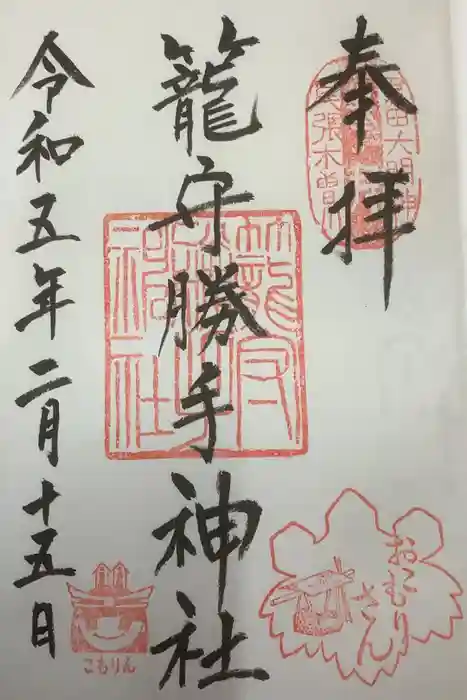 奉拝
籠守勝手神社
令和五年二月十五日
籠守勝手神社
おこもり
さん
こもりん